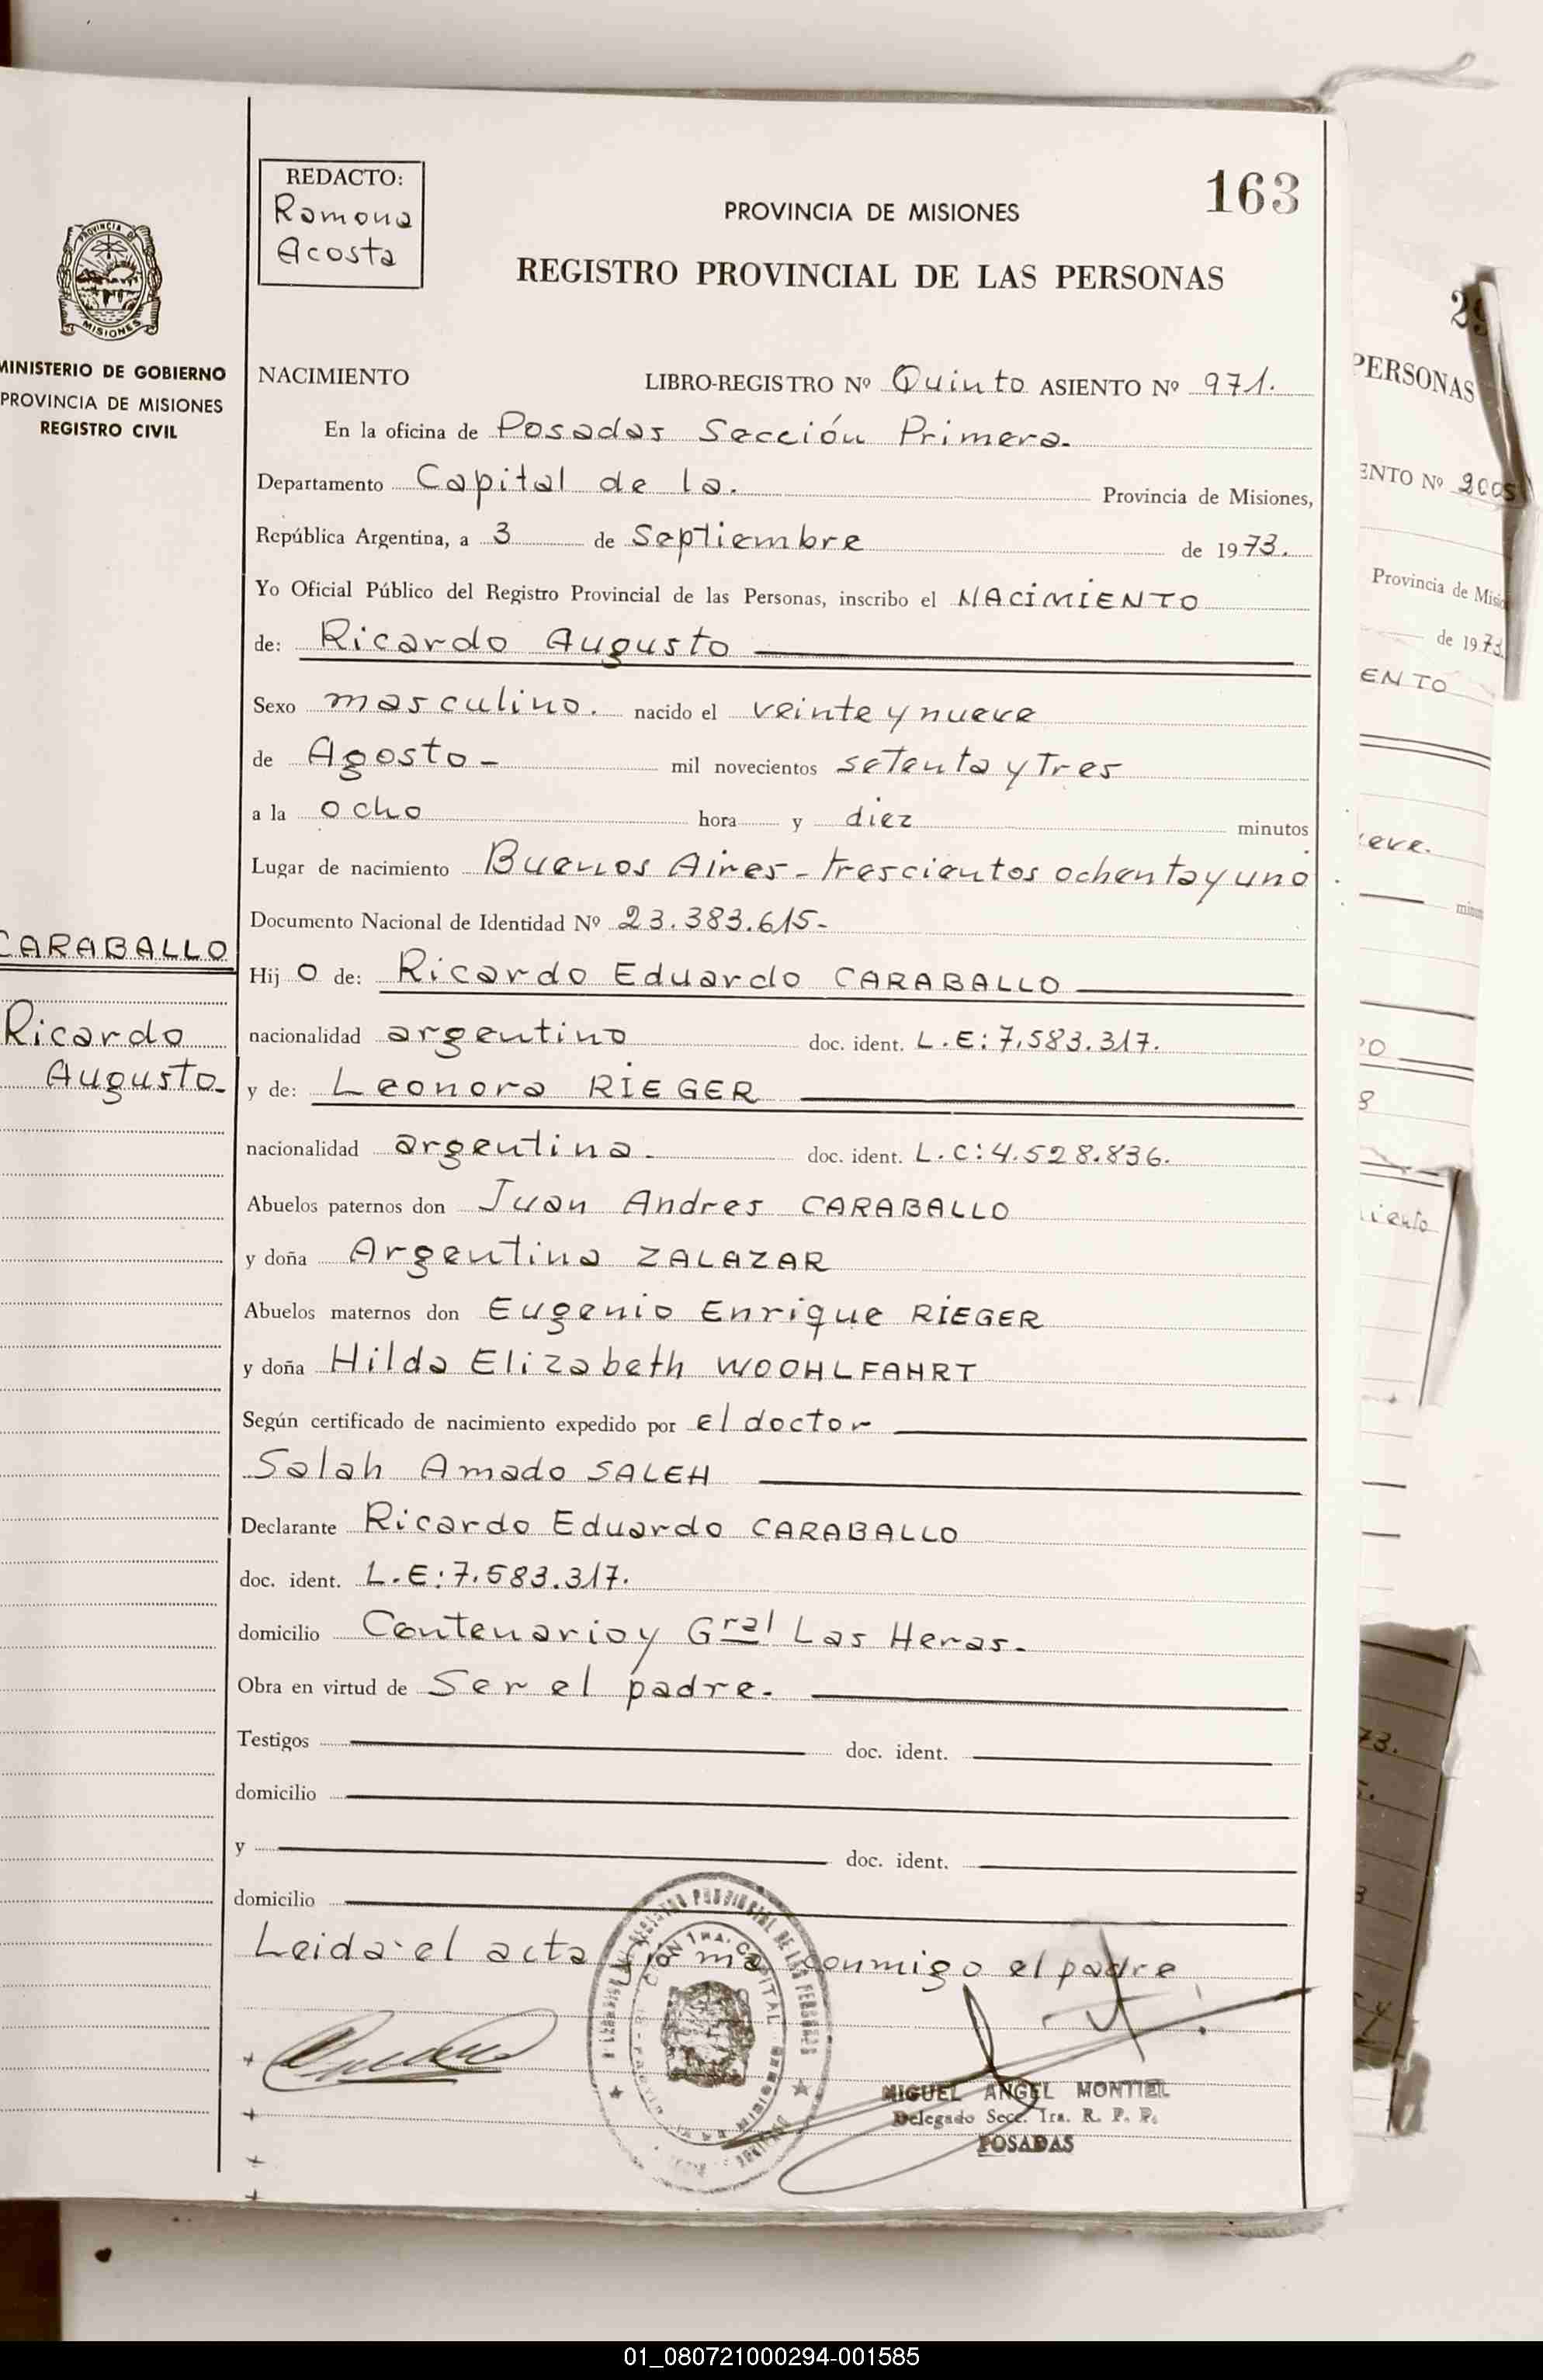 REDACTO:
Ramona
Acosta
163
PROVINCIA DE MISIONES
REGISTRO PROVINCIAL DE LAS PERSONAS
PROVINCIA DE
MISIONES
MINISTERIO DE GOBIERNO
PROVINCIA DE MISIONES
REGISTRO CIVIL
CARABALLO
Ricardo
Augusto-
NACIMIENTO LIBRO-REGISTRO Nº Quinto ASIENTO Nº 971.
En la oficina de Posadas Sección Primera-
Departamento Capital de la. Provincia de Misiones,
República Argentina, a 3 de Septiembre de 1973.
Yo Oficial Público del Registro Provincial de las Personas, inscribo el NACIMIENTO
de: Ricardo Augusto
Sexo masculino. nacido el veinte y nueve
de Agosto- mil novecientos setenta y Tres
a la ocho hora y diez minutos
Lugar de nacimiento Buenos Aires - trescientos ochenta y uno
Documento Nacional de Identidad Nº 23.383.615-
Hij o de: Ricardo Eduardo CARABALLO
nacionalidad argentino doc. ident. L.E:7.583.317.
y de: Leonora RIEGER
nacionalidad argentina. doc. ident. L.C:4.528.836.
Abuelos paternos don Juan Andres CARABALLO
y doña Argentina ZALAZAR
Abuelos maternos don Eugenio Enrique RIEGER
y doña Hilda Elizabeth WOOHLFAHRT
Según certificado de nacimiento expedido por el doctor
Salah Amado SALEH
Declarante Ricardo Eduardo CARABALLO
doc. ident. L.E:7.583.317.
domicilio Centenario y Gral Las Heras-
Obra en virtud de Ser el padre-
Testigos doc. ident.
domicilio
y doc. ident.
domicilio
Leida el acta firma conmigo el padre
MIGUEL ANGEL MONTIEL
Delegado Secc. 1ra. R. P. P.
POSADAS
PERSONAS
ENTO Nº 2005
Provincia de Misio
de 1973.
ENTO
eve.
iento
73.
01_080721000294-001585